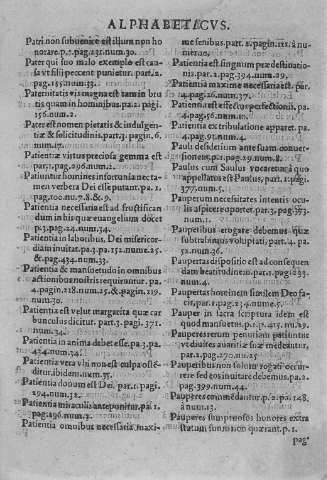 ALPHABETICVS.
Patri non subuenire est illum non ho
norare. p. 1. pag. 15. num. 30.
Pater qui suo malo exemplo est cau
sa vt filij peccent punietur. part. 2.
pag. 155. num. 33.
Paternitatis vis magna est tam in bru
tis quam in hominibus. pa. 2. pagi.
156. num. 2.
Pater est nomen pietatis & indulgen
tiæ & solicitudinis. part. 4. pagin. 6.
num. 17.
Patientiæ virtus pretiosa gemma est
part. 2. pag. 296. num. 2.
Patiuntur homines infortunia ne ta-
men verbera Dei esse putant. pa. 2.
pag. 100. nu. 7. 8. & 9.
Patientia necessaria est ad fructifican
dum in his quæ euangelium docet
p. 3. pag. 24. num. 34.
Patientia in laboribus, Dei misericor-
diam inuitat. pa. 3. pa. 152. nume. 25.
& pag. 434. num. 33.
Patientia & mansuetudo in omnibus
actionibus nostris requirantur. pa.
4. pagin. 218. num. 25. & pagin. 219.
num. 30.
Patientia est velut margarita quæ car
bunculus dicitur. part. 3. pagi. 371.
num. 34.
Patientia in anima debet esse. pa. 3. pa.
434. num. 34.
Patientia vera vbi non est culpa ostē-
ditur. ibidem. num. 35.
Patientia donum est Dei. par. 1. pagi.
294. num. 32.
Patientia miraculis anteponitur. pa. 1.
pag. 296. num. 2.
Patientia omnibus necessaria maxi-
me senibus. part. 2. pagin. 112. à nu-
mer. 10.
Patientia est signum prædestinatio-
nis. par. 2. pag. 394. num. 29.
Patientia maxime necessaria est. par.
4. pag. 56. num. 37.
Patientia est effectus perfectionis. pa.
4. pag. 56. num. 10.
Patientia ex tribulatione apparet. pa.
4. pag. 95. num. 4.
Pauli desiderium ante suam conuer-
sionem. p. 1. pag. 29. num. 8.
Paulus cum Saulus vocaretur à quo
appellatus est Paulus. part. 1. pagi.
377. num. 5.
Pauperum necessitates intentis ocu-
lis aspicere oportet. par. 3. pag. 373.
num. 1.
Pauperibus erogare debemus quæ
subtrahimus voluptati. part. 4. pa.
52. num. 36.
Paupertas dispositio est ad consequen
dam beatitudinem. part. 1. pagi. 233.
num. 4.
Paupertas hominem similem Deo fa-
cit. par. 1. pag. 234. nume. 5.
Pauper in sacra scriptura idem est
quod mansuetus. p. 1. p. 415. nu. 29.
Pauperes rerum penuriam patiuntur
vt diuites auaritiæ suæ medeantur.
par. 2. pag. 170. num. 25
Pauperibus non solum rogati occur-
rere sed eos inuitare debemus. pa. 2.
pag. 399. num. 44.
Pauperes commēdantur. p. 2. pa. 148.
à num. 13.
Pauperes sumptuosos honores extra
statum suum non quærant. p. 1.
pag.